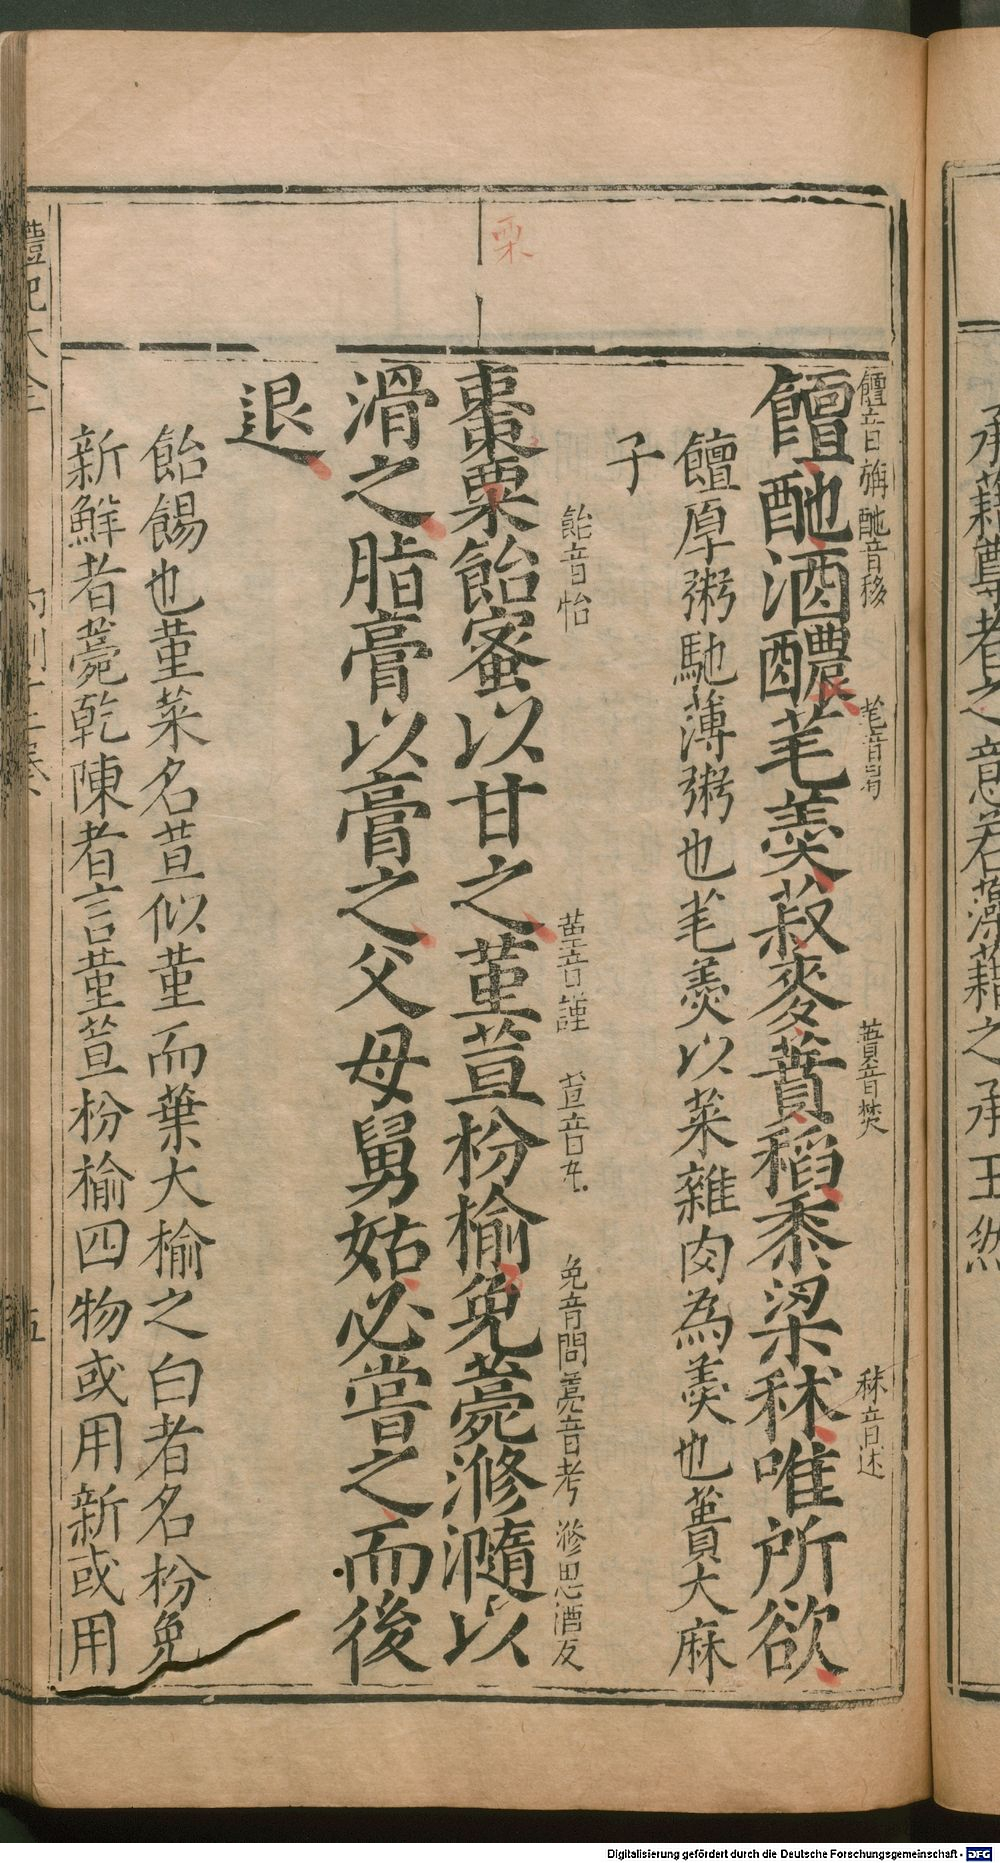 饘音旃 酏音移 芼音冐 蕡音焚 秫音述
饘酏酒醴芼羹菽麥蕡稻黍梁秫唯所欲
饘厚粥馳薄粥也芼羹以菜雜肉為羹也蕡大麻
子
飴音怡 菫音謹 荁音丸 免音問 薧音考 滫思酒反
棗栗飴蜜以甘之菫荁枌榆免薧滫瀡以
滑之脂膏以膏之父母舅姑必嘗之而後
退
飴餳也菫菜名荁似菫而葉大榆之白者名枌免
新鮮者薧乾陳者言菫荁枌榆四物或用新或用
栗
禮記大全
五
承藉尊者之意若藻藉之承玉然
Digitalisierung gefördert durch die Deutsche Forschungsgemeinschaft - DFG